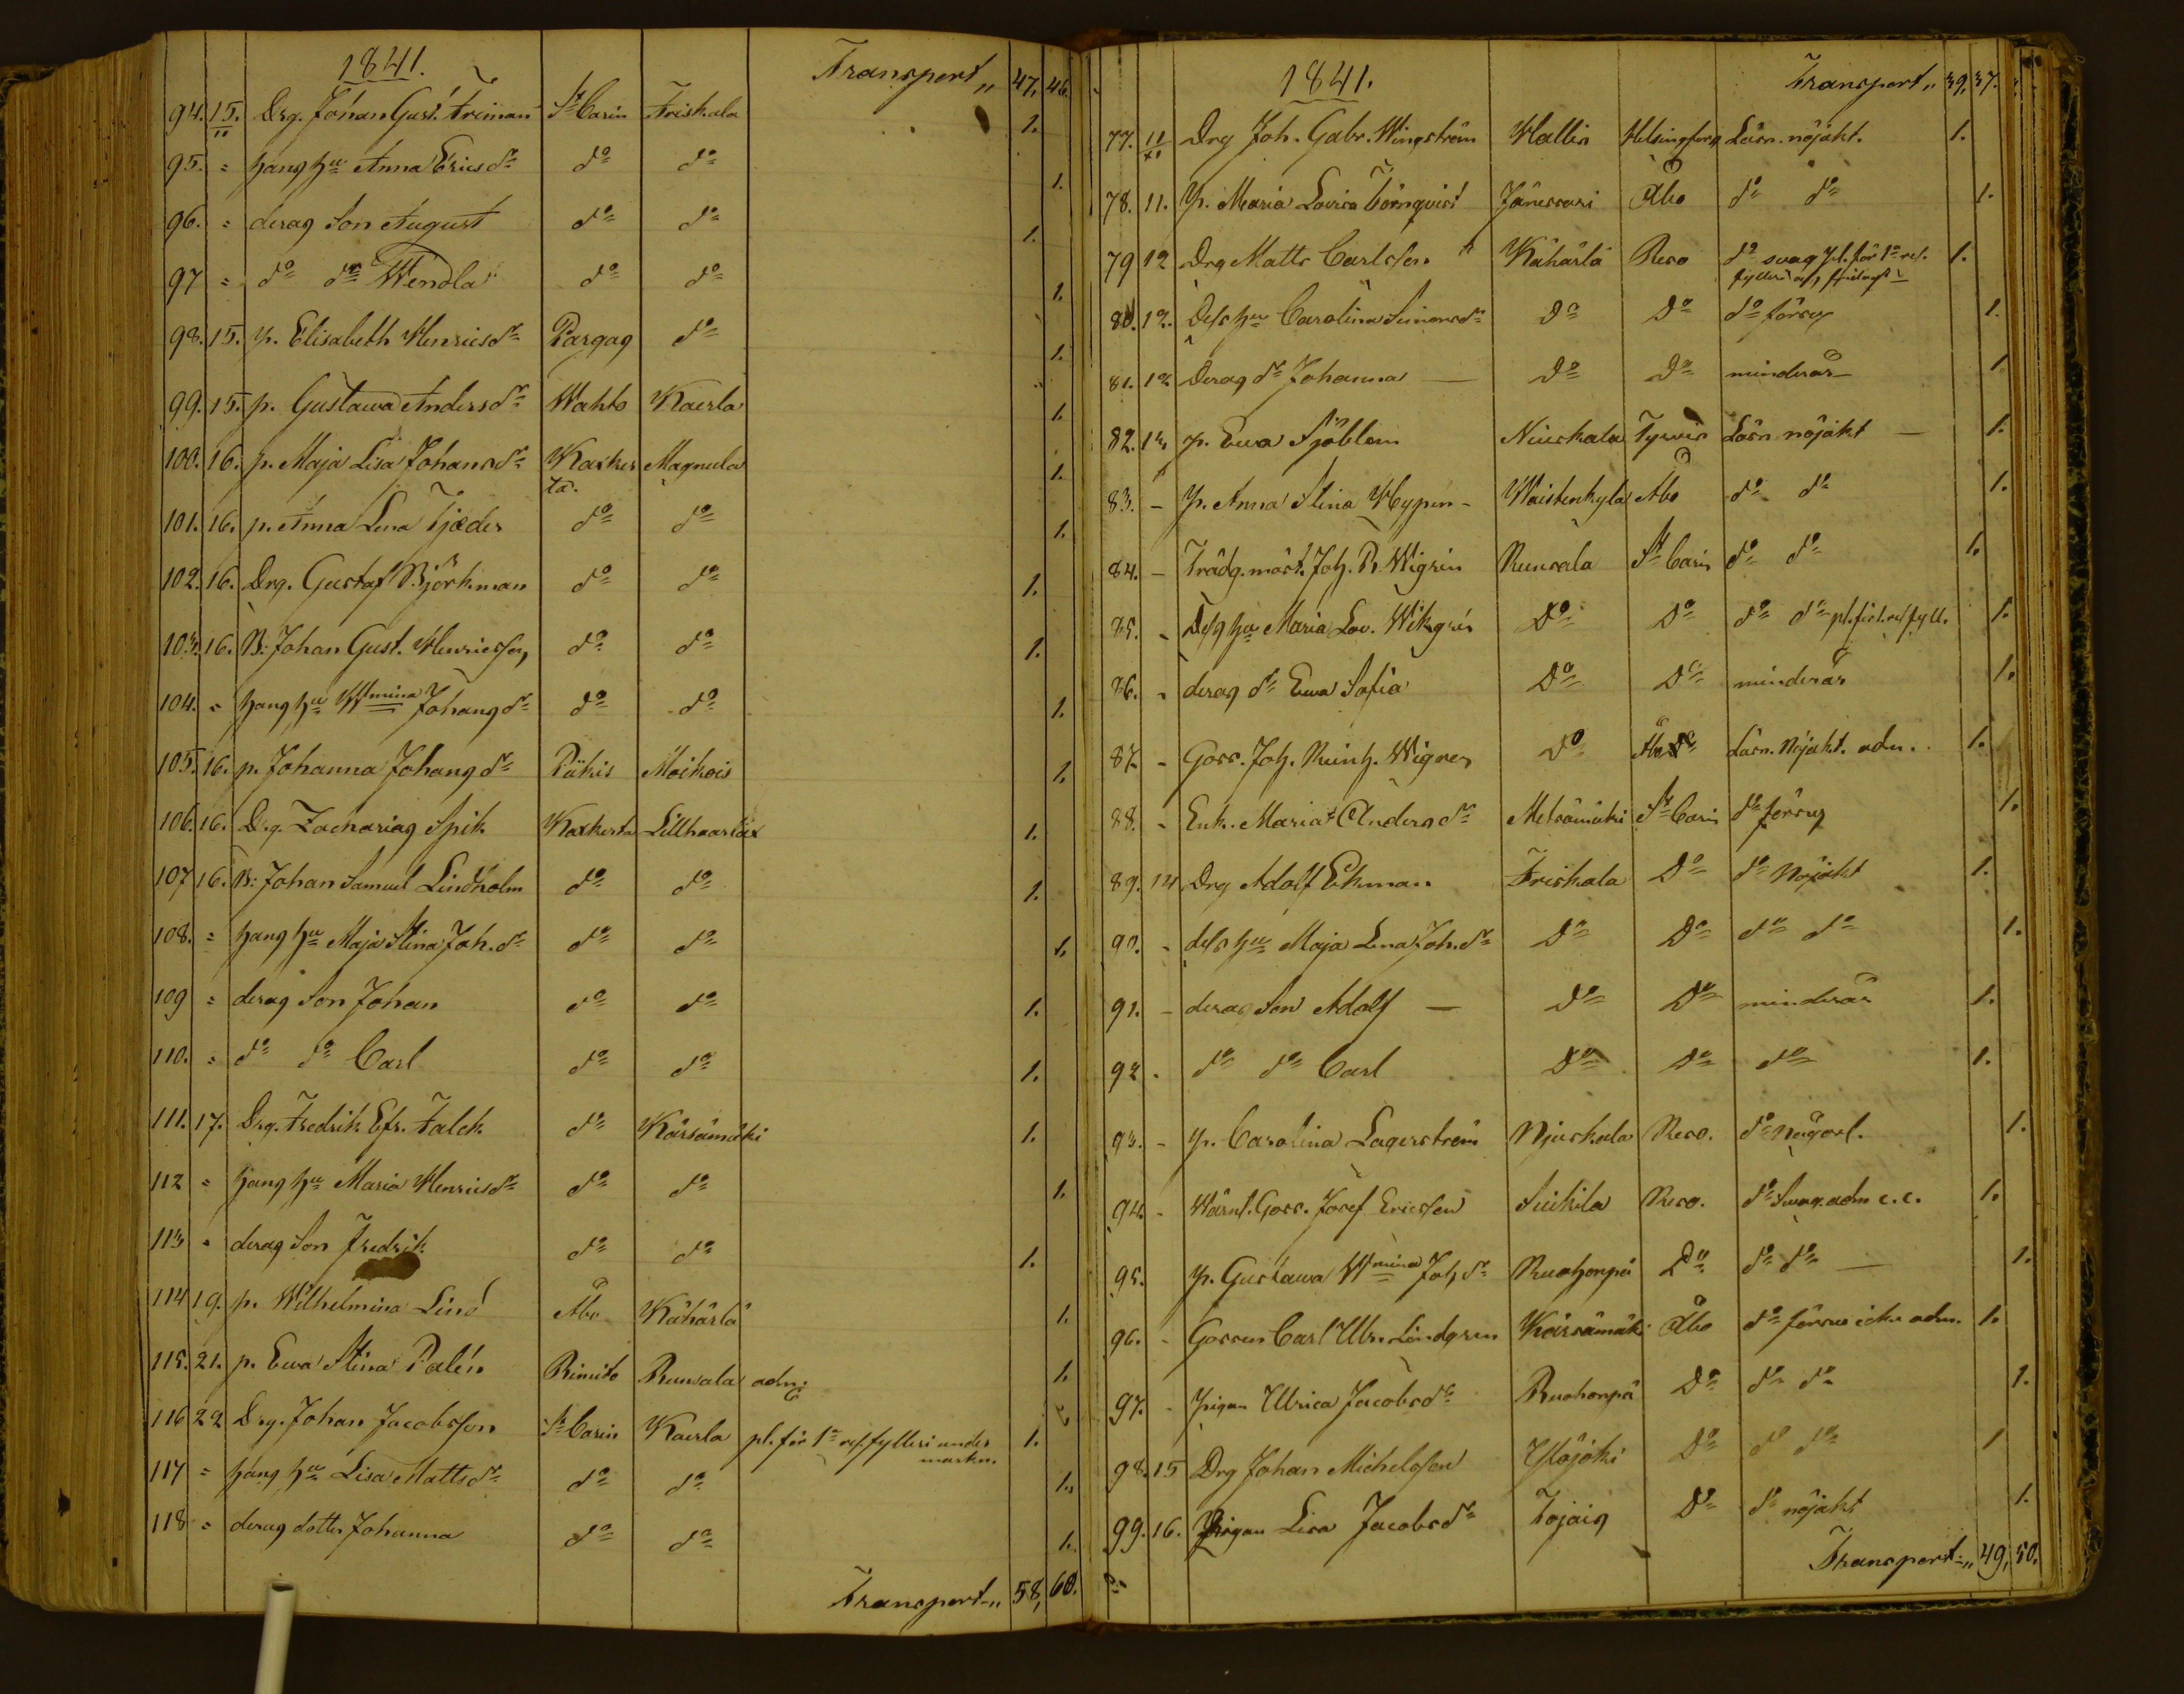 1841. Transport „ 47. 46.
94. 15/11 Drg. Johan Gust. Friman St Carin Friskala 1.
95. = hans hu Anna Ericsdr do do 1.
96. = deras Son August do do 1.
97 = do dr Wendla do do 1.
98. 15. p. Elisabeth Henricsdr Pargas do 1.
99. 15. p. Gustawa Andersdr Wahto Kaerla 1.
100. 16. p. Maja Lisa Johansdr Kaskerta. Magnula 1.
101. 16. p. Anna Lena Tjeder do do 1.
102. 16. Drg. Gustaf Björkman do do 1.
103. 16. B: Johan Gust. Henricsson do do 1.
104. = hans hu Wmina Johansdr do do 1.
105. 16. p. Johanna Johansdr Pükis Moikois 1.
106. 16. Drg. Zacharias Spik Kaskerta Lillhaarlax 1.
107 16. B: Johan Samuel Lindholm do do 1.
108. = hans hu Maja Stina Joh.dr do do 1.
109 = deras Son Johan do do 1.
110. = do do Carl do do 1.
111. 17. Drg. Fredrik Efr. Falck do Kärsämäki 1.
112 = hans hu Maria Henricsdr do do 1.
113 = deras Son Fredrik do do 1.
114 19. p. Wilhelmina Lind Åbo Kähärlä 1.
115. 21. p. Ewa Stina Palén Rimito Runsala adm: 1.
116 22 Drg. Johan Jacobsson St Carin Kaerla pl. för 1a res. fylleri under 1.
markn.
117 = hans hu Lisa Mattsdr do do 1.
118 = deras dotter Johanna do do 1.
Transport „ 58, 60.
1841. Transport „ 39. 37.
77. 11/10 Drg Joh. Gabr. Wingström Hallis Helsingfors Läsn. nöjakt. 1.
78. 11. p. Maria Lovisa Törnqvist Jänessari Åbo do do 1.
79 12 Drg Matts Carlsson Kähärlä Reso do svag pl. för 1a res. 1.
80. 12. Dess hu Carolina Simonsdr Do Do do försv 1.
81. 12 Deras dr Johanna — Do Do minderår 1.
82. 12 p. Ewa Sjöblom Niuskala Tyrvis Läsn nöjakt — 1.
83. - p. Anna Stina Hypén - Waistenkylä Åbo do do 1.
84. - Trädg.mäst. Joh. R. Wigrén Runsala St Carin do do 1.
85. - Dess hu Maria Lov. Wikgrén Do Do do do 1.
86. - deras dr Ewa Sofia Do Do minderår 1.
87. - Goss. Joh. Reinh. Wigren Do Åbo Läsn. Nöjakt. adm. 1.
88. - Enk. Maria Andersdr Metsämäki St Carin do försv 1.
89. 14 Drg Adolf Ekman Friskala Do do Nöjakt 1.
90. - dess hu Maja Lena Joh.dr Do Do do do 1.
91. - deras Son Adolf — Do Do minderår 1.
92. - do do Carl Do Do do 1.
93. - p. Carolina Lagerström Njuskala Reso. do någorl. 1.
94. - Wärnl. Goss. Josef Ericsson Suikila Reso. do Svag. adm c.c. 1.
95. p. Gustawa Wmina Joh.dr Ruohonpä Do do do — 1.
96. - Gossen Carl Ulr. Lindgren Kärsämäki Åbo do försv icke adm. 1.
97. - Pigan Ulrica Jacobsdr Ruohonpä Do do do 1.
98. 15 Drg Johan Michelsson Ylöjoki Do do do 1
99. 16. Pigan Lisa Jacobsdr Tojais Do do nöjakt 1.
Transport „ 49, 50.